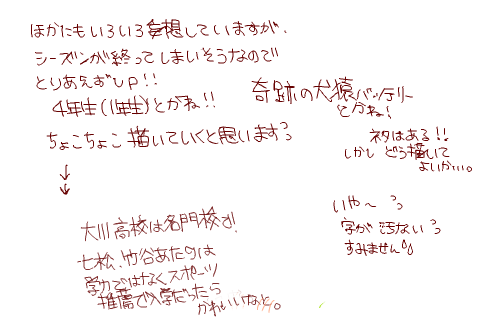 ほかにもいろいろ妄想していますが、
シーズンが終ってしまいそうなので
とりあえずUP!!
4年生(1年生)とかね!!
奇跡の犬猿バッテリー
とかね!
ちょこちょこ描いていくと思いますっ
ネタはある!!
しかし どう描いて
よいか…。
↓
↓
大川高校は名門校で!
七松、竹谷あたりは
学力ではなくスポーツ
推薦で入学だったら
かわいいなと。
いや〜 っっ
字が汚ないっ
すみません